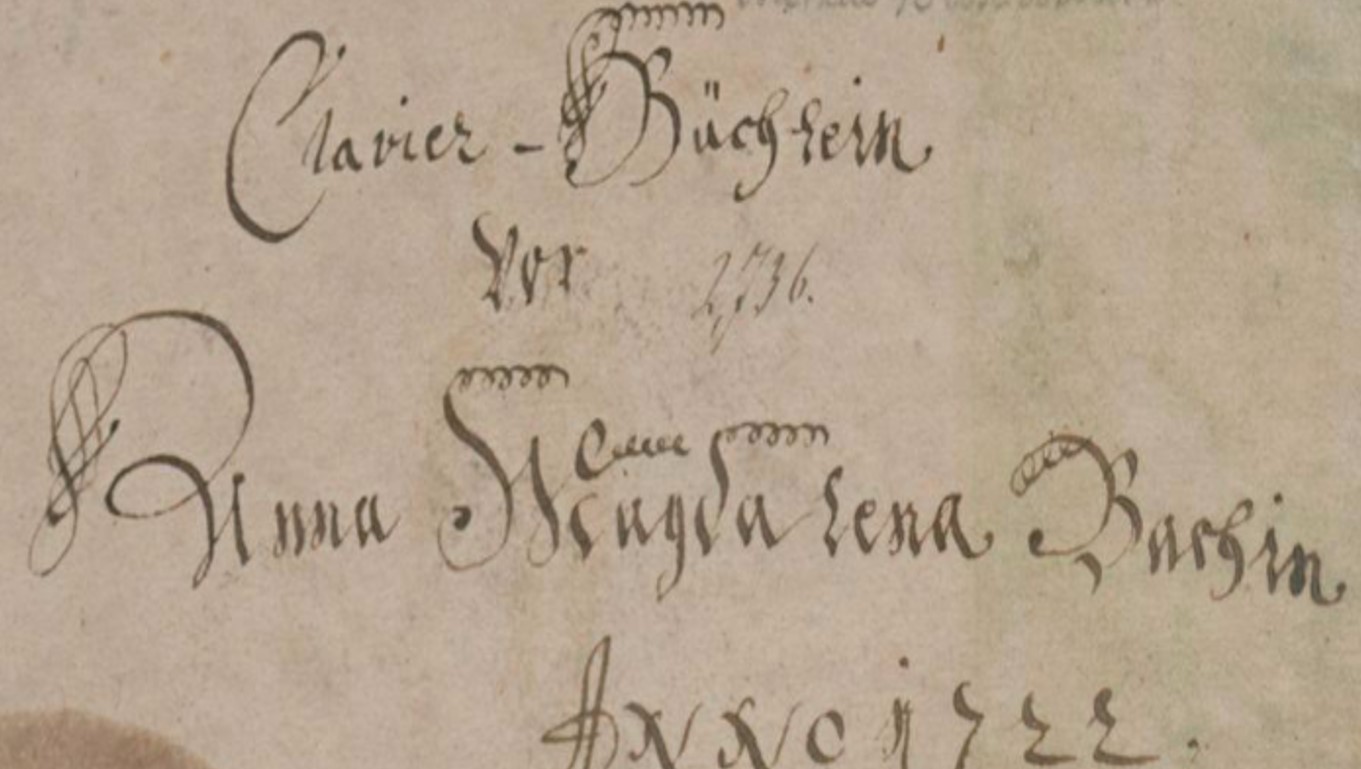 Clavier-Büchlein
Vor
Anna Magdalena Bachin
ANNO 1722.